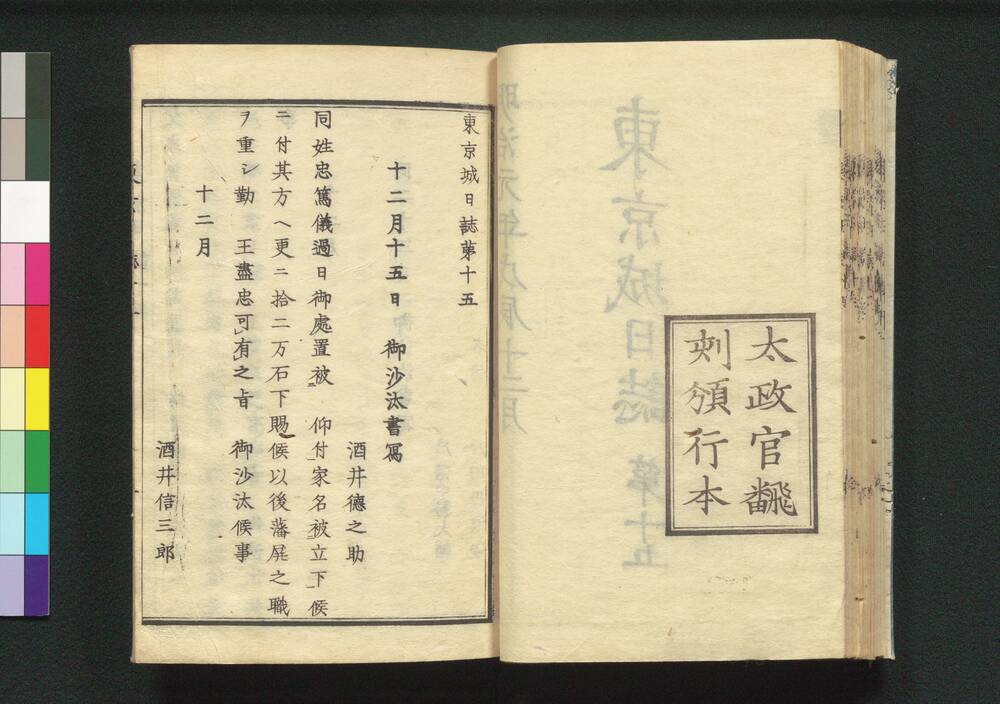 太政官飜
刻領行本
東京城日誌第十五
十二月十五日御沙汰書冩
酒井德之助
同姓忠篤儀過日御處置被　仰付家名被立下候
ニ付其方ヘ更ニ拾二万石下賜候以後藩屏之職
ヲ重シ勤　王盡忠可有之旨　御沙汰候事
十二月
酒井信三郎